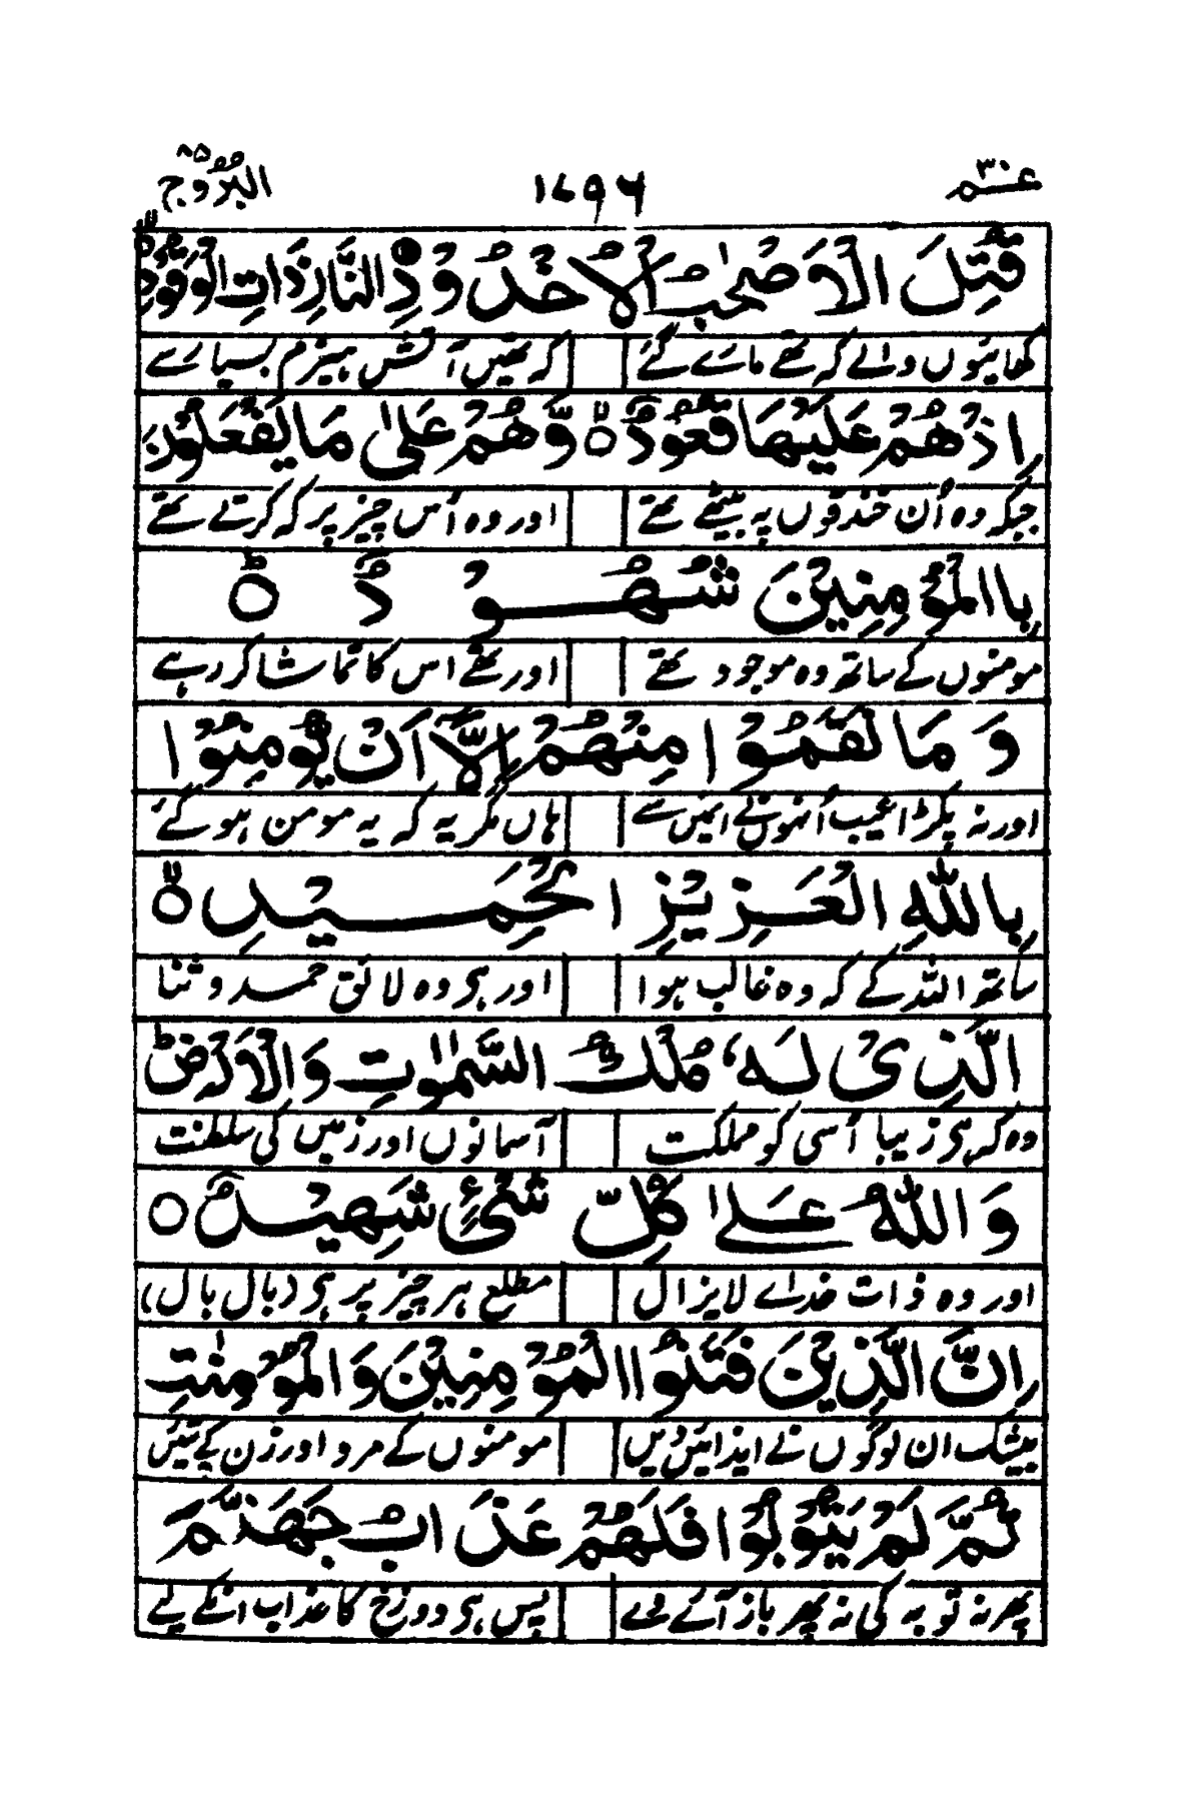 عم ۳۰ ۱۷۹۶ البروج ۸۵
قُتِلَ الْاَصْحٰبُ الْاُخْدُوْدِ النَّارِ ذَاتِ الْوَقُوْدِ
کھائیوں والے کہ تھے مارے گئے کہ تھیں آتش ہیزم بسیارے
اِذْ هُمْ عَلَيْهَا قُعُوْدٌ ۙ وَّهُمْ عَلٰى مَا يَفْعَلُوْنَ
جبکہ وہ اُن خندقوں پہ بیٹھے تھے اور وہ اُس چیز پر کہ کرتے تھے
بِاالْمُؤْمِنِيْنَ شُهُوْدٌ ؕ
مومنوں کے ساتھ وہ موجود تھے اور تھے اس کا تماشا کر رہے
وَمَا نَقَمُوْا مِنْهُمْ اِلَّاۤ اَنْ يُّؤْمِنُوْا
اور نہ پکڑا عیب اُنہوں نے انہیں سے ہاں مگر یہ کہ یہ مومن ہو گئے
بِاللّٰهِ الْعَزِيْزِ الْحَمِيْدِ ۙ
ساتھ اللہ کے کہ وہ غالب ہوا اور ہی وہ لائق حمد و ثنا
الَّذِىْ لَهٗ مُلْكُ السَّمٰوٰتِ وَالْاَرْضِ ؕ
وہ کہ ہی زیبا اُسی کو مملکت آسمانوں اور زمیں کی سلطنت
وَاللّٰهُ عَلٰى كُلِّ شَىْءٍ شَهِيْدٌ ۝
اور وہ ذات خداے لایزال مطلع ہر چیز پر ہی (بال بال)
اِنَّ الَّذِيْنَ فَتَنُوا الْمُؤْمِنِيْنَ وَالْمُؤْمِنٰتِ
بیشک ان لوگوں نے ایذائیں دیں مومنوں کے مرد اور زن کے تئیں
ثُمَّ لَمْ يَتُوْبُوْا فَلَهُمْ عَذَابُ جَهَنَّمَ
پھر نہ توبہ کی نہ پھر باز آئے وے پس ہی دوزخ کا عذاب انکے لیے